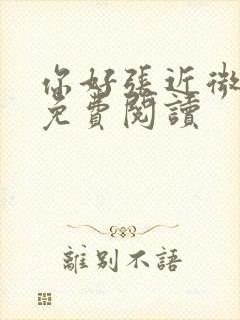 你好張近微
免費閱讀
離別不語